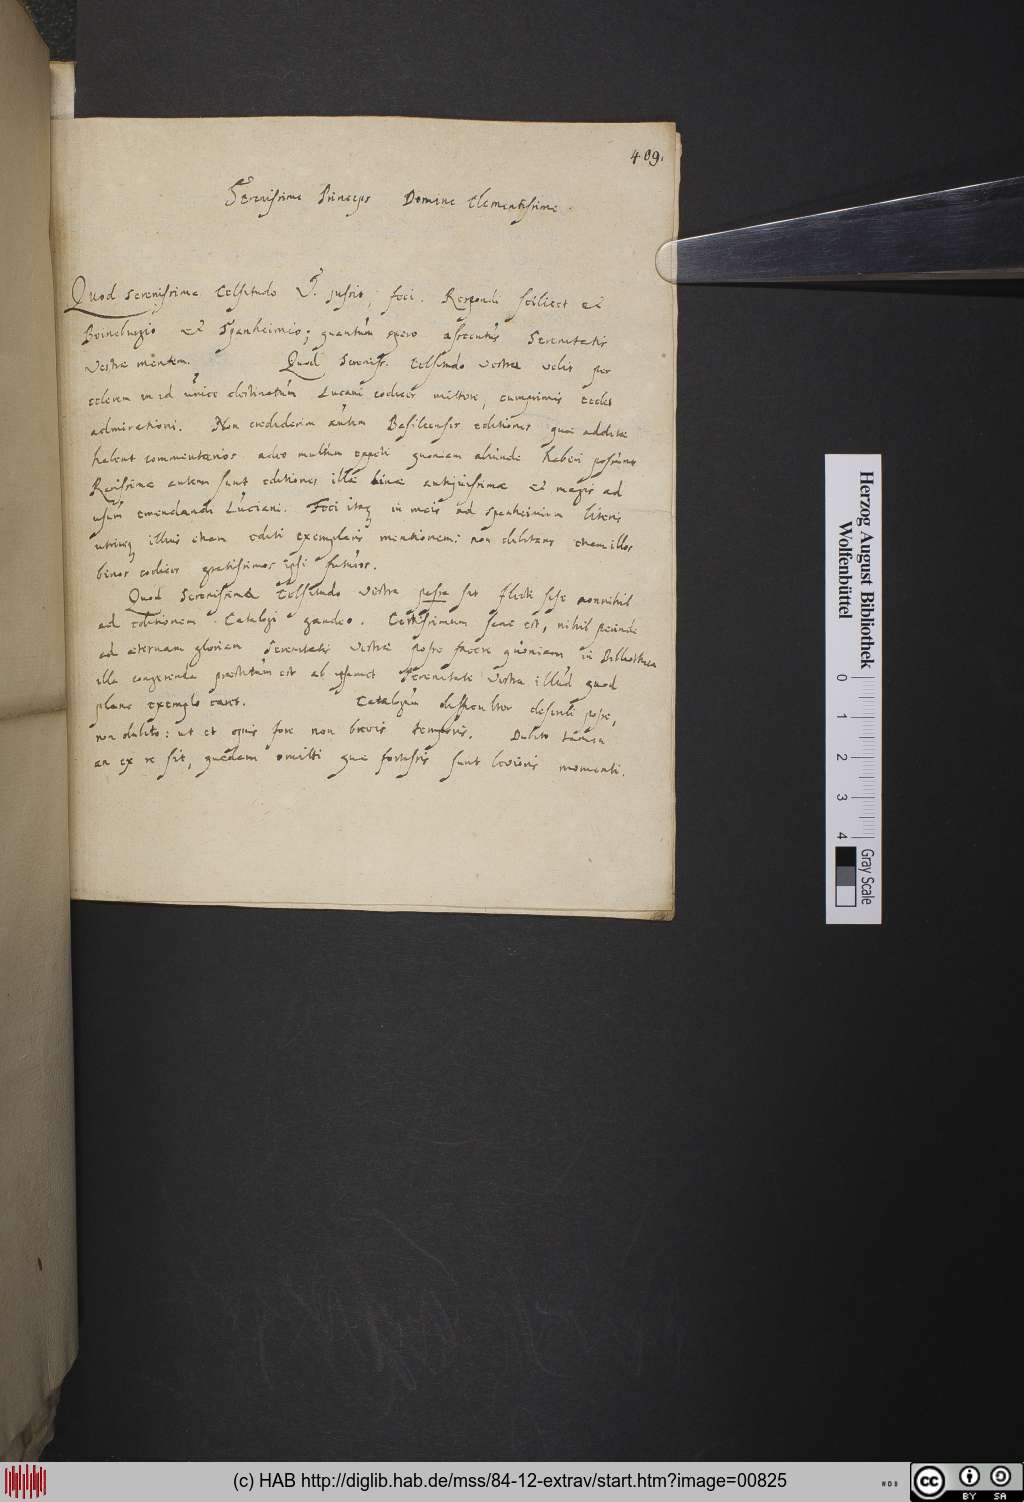 409.
Serenissime Princeps Domine Clementissime.
Quod Serenissima Celsitudo V. jussit, feci. Respondi scilicet et
Boineburgio et Spanhemio; quantum spero assecutus Serenitatis
Vestrae mentem. Quod Sereniss. Celsitudo vestra velit per
celerem in id unice destinatum Luciani codices mittere, cumprimis cedet
admirationi. Non crediderim autem Basileenses editiones quae additos
habent commentarios adeo multum expeti quoniam aliunde haberi possunt
Rarissimae autem sunt editiones illae binae antiquissimae et magis ad
usum emendandi Luciani. Feci itaq in meis ad Spanheimium literis
utriusq illius etiam editi exemplaris mentionem: non dubitans etiam illos
binos codices gratissimos ipsi futuros.
Quod Serenissima Celsitudo vestra passa sit flecti sese nonnihil
ad editionem Catalogi gaudeo. Certissimum sane est, nihil perinde
ad aeternam gloriam Serenitatis Vestrae posse facere quoniam in Bibliotheca
illa congerenda praestitum est ab Serenitate Vestra illud quod
plane exemplo caret. Catalogum difficulter describi posse,
non dubito: ut et opus fore non brevis temporis. Dubito tamen
an ex re sit, quaedam omitti quae forsitan sunt levioris momenti.
Herzog August Bibliothek
Wolfenbüttel
0 1 2 3 4
Gray Scale
(c) HAB http://diglib.hab.de/mss/84-12-extrav/start.htm?image=00825
cc BY SA